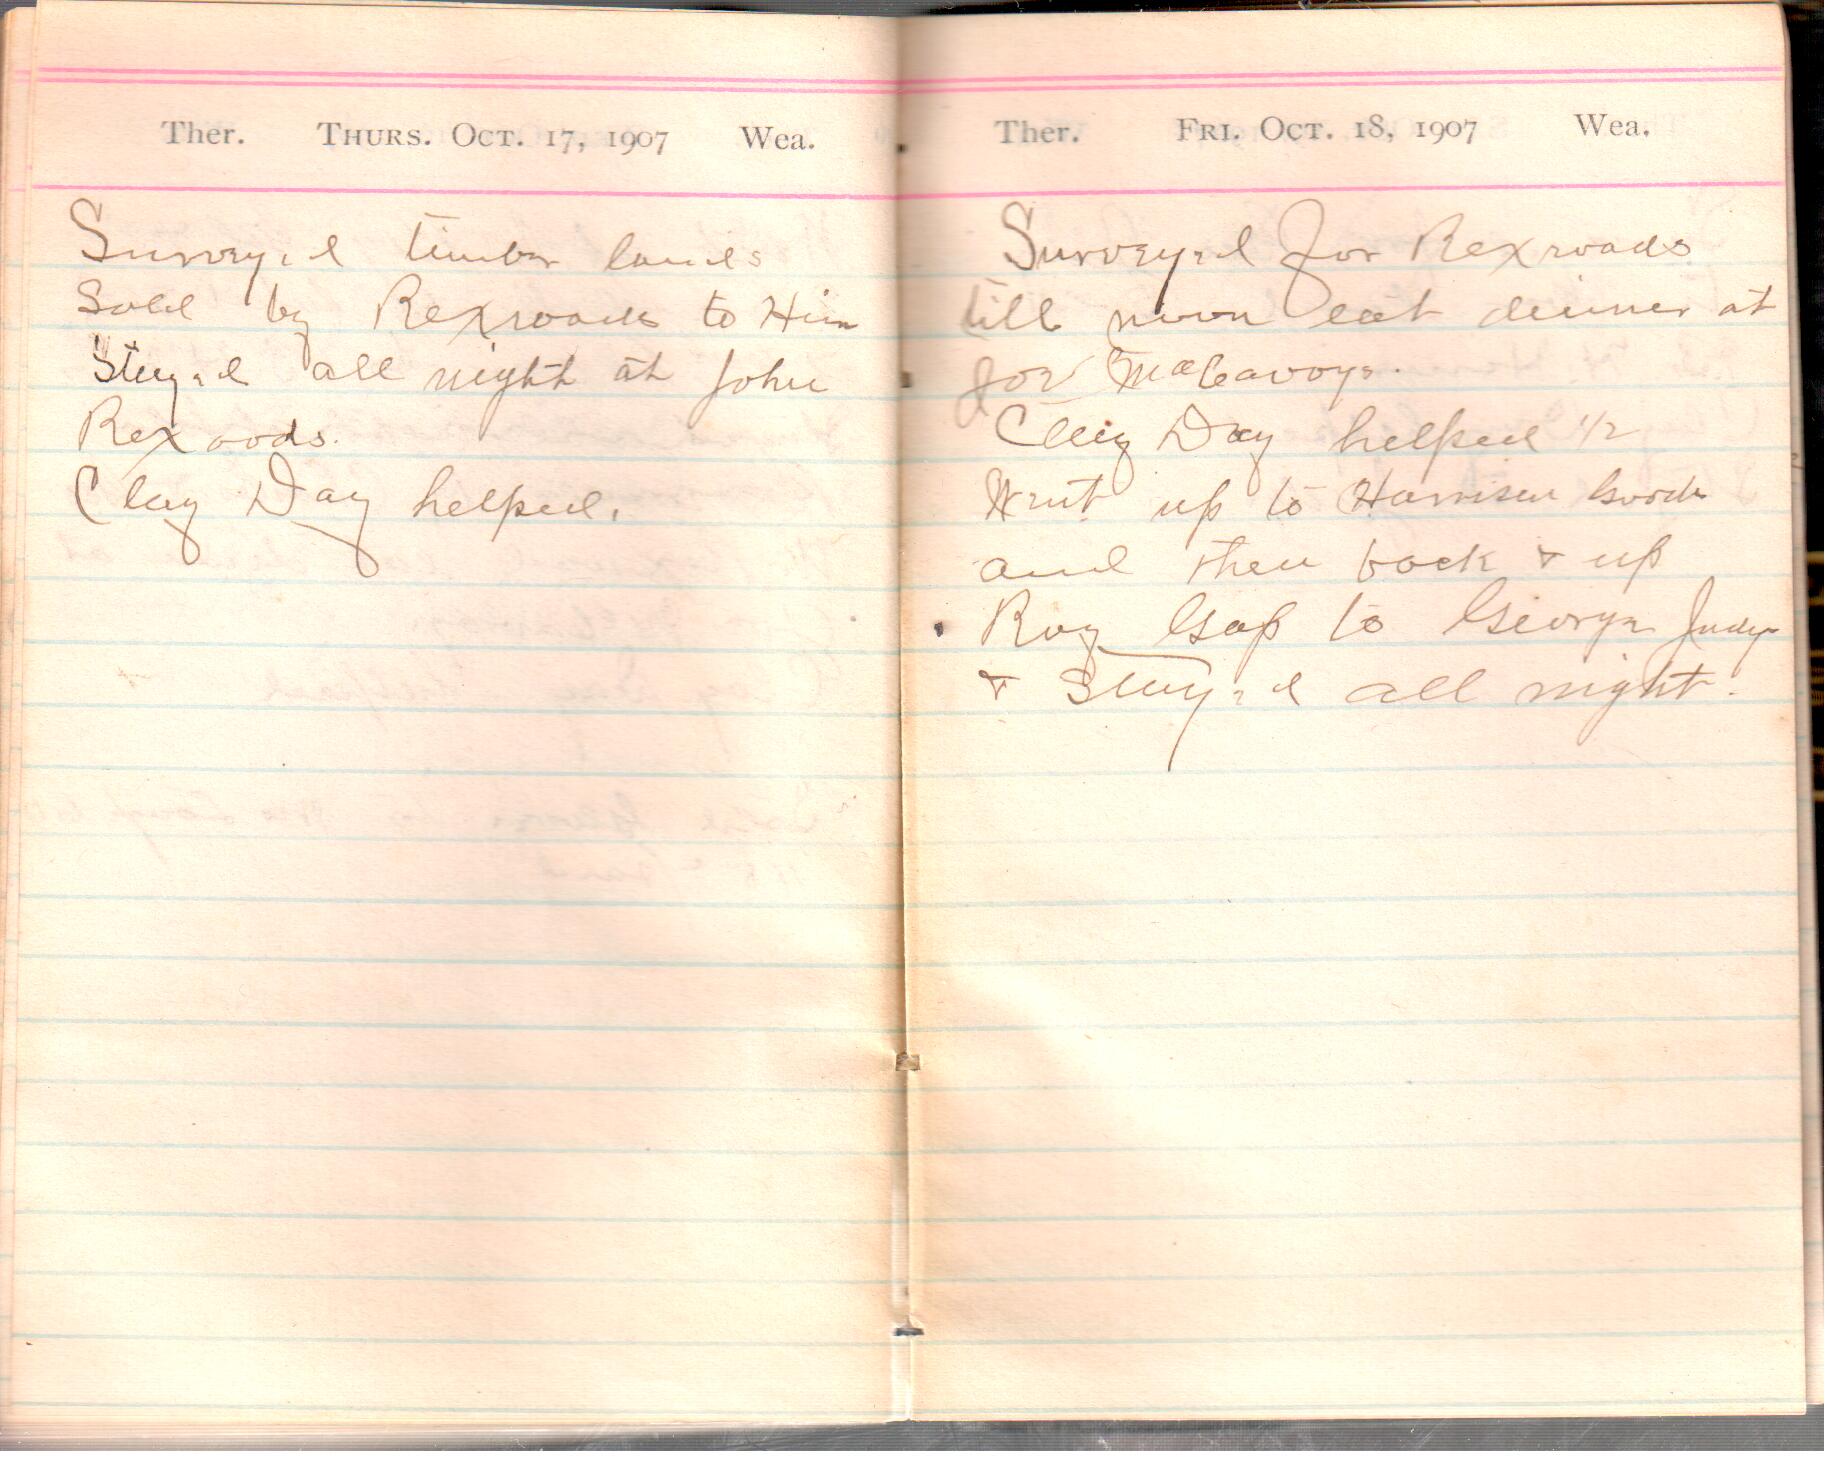 Ther. Thurs. Oct. 17, 1907 Wea.
Surveyed timber lands
sold by Rexroads to Him
Stayed all night at John
Rexroods.
Clay Day helped.
Ther. Fri. Oct. 18, 1907 Wea.
Surveyed for Rexroads
till noon eat dinner at
for McCavoys.
Clay Day helped 1/2
Went up to Harrison
and then back & up
Roy Gap to George Judys
& Stayed all night.